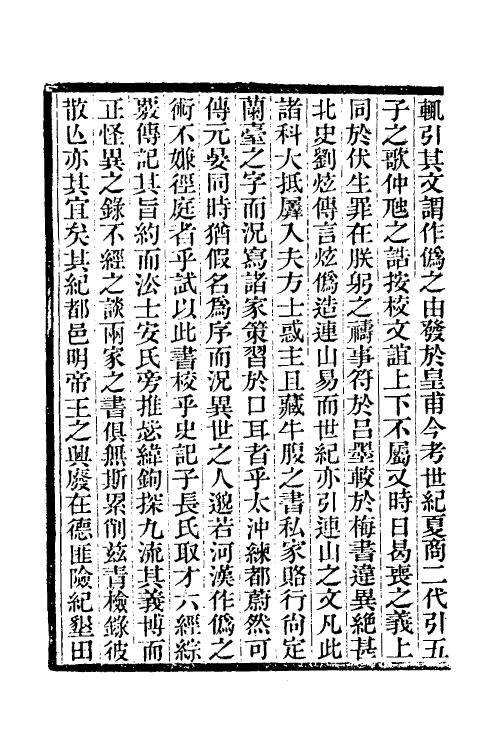 輒引其文謂作僞之由發於皇甫今考世紀夏商二代引五
子之歌仲虺之誥按校文誼上下不屬又時日曷喪之義上
同於伏生罪在朕躬之禱事符於呂墨較於梅書違異絕甚
北史劉炫傳言炫僞造連山易而世紀亦引連山之文凡此
諸科大抵羼入夫方士惑主且藏牛腹之書私家賂行尙定
蘭臺之字而況寫諸家策習於口耳者乎太沖練都蔚然可
傳元晏同時猶假名爲序而況異世之人邈若河漢作僞之
術不嫌徑庭者乎試以此書校乎史記子長氏取才六經綜
覈傳記其旨約而浤士安氏旁推毖緯鉤探九流其義博而
正怪異之錄不經之談兩家之書俱無斯累削茲青檢錄彼
散亾亦其宜矣其紀都邑明帝王之興廢在德匪險紀墾田